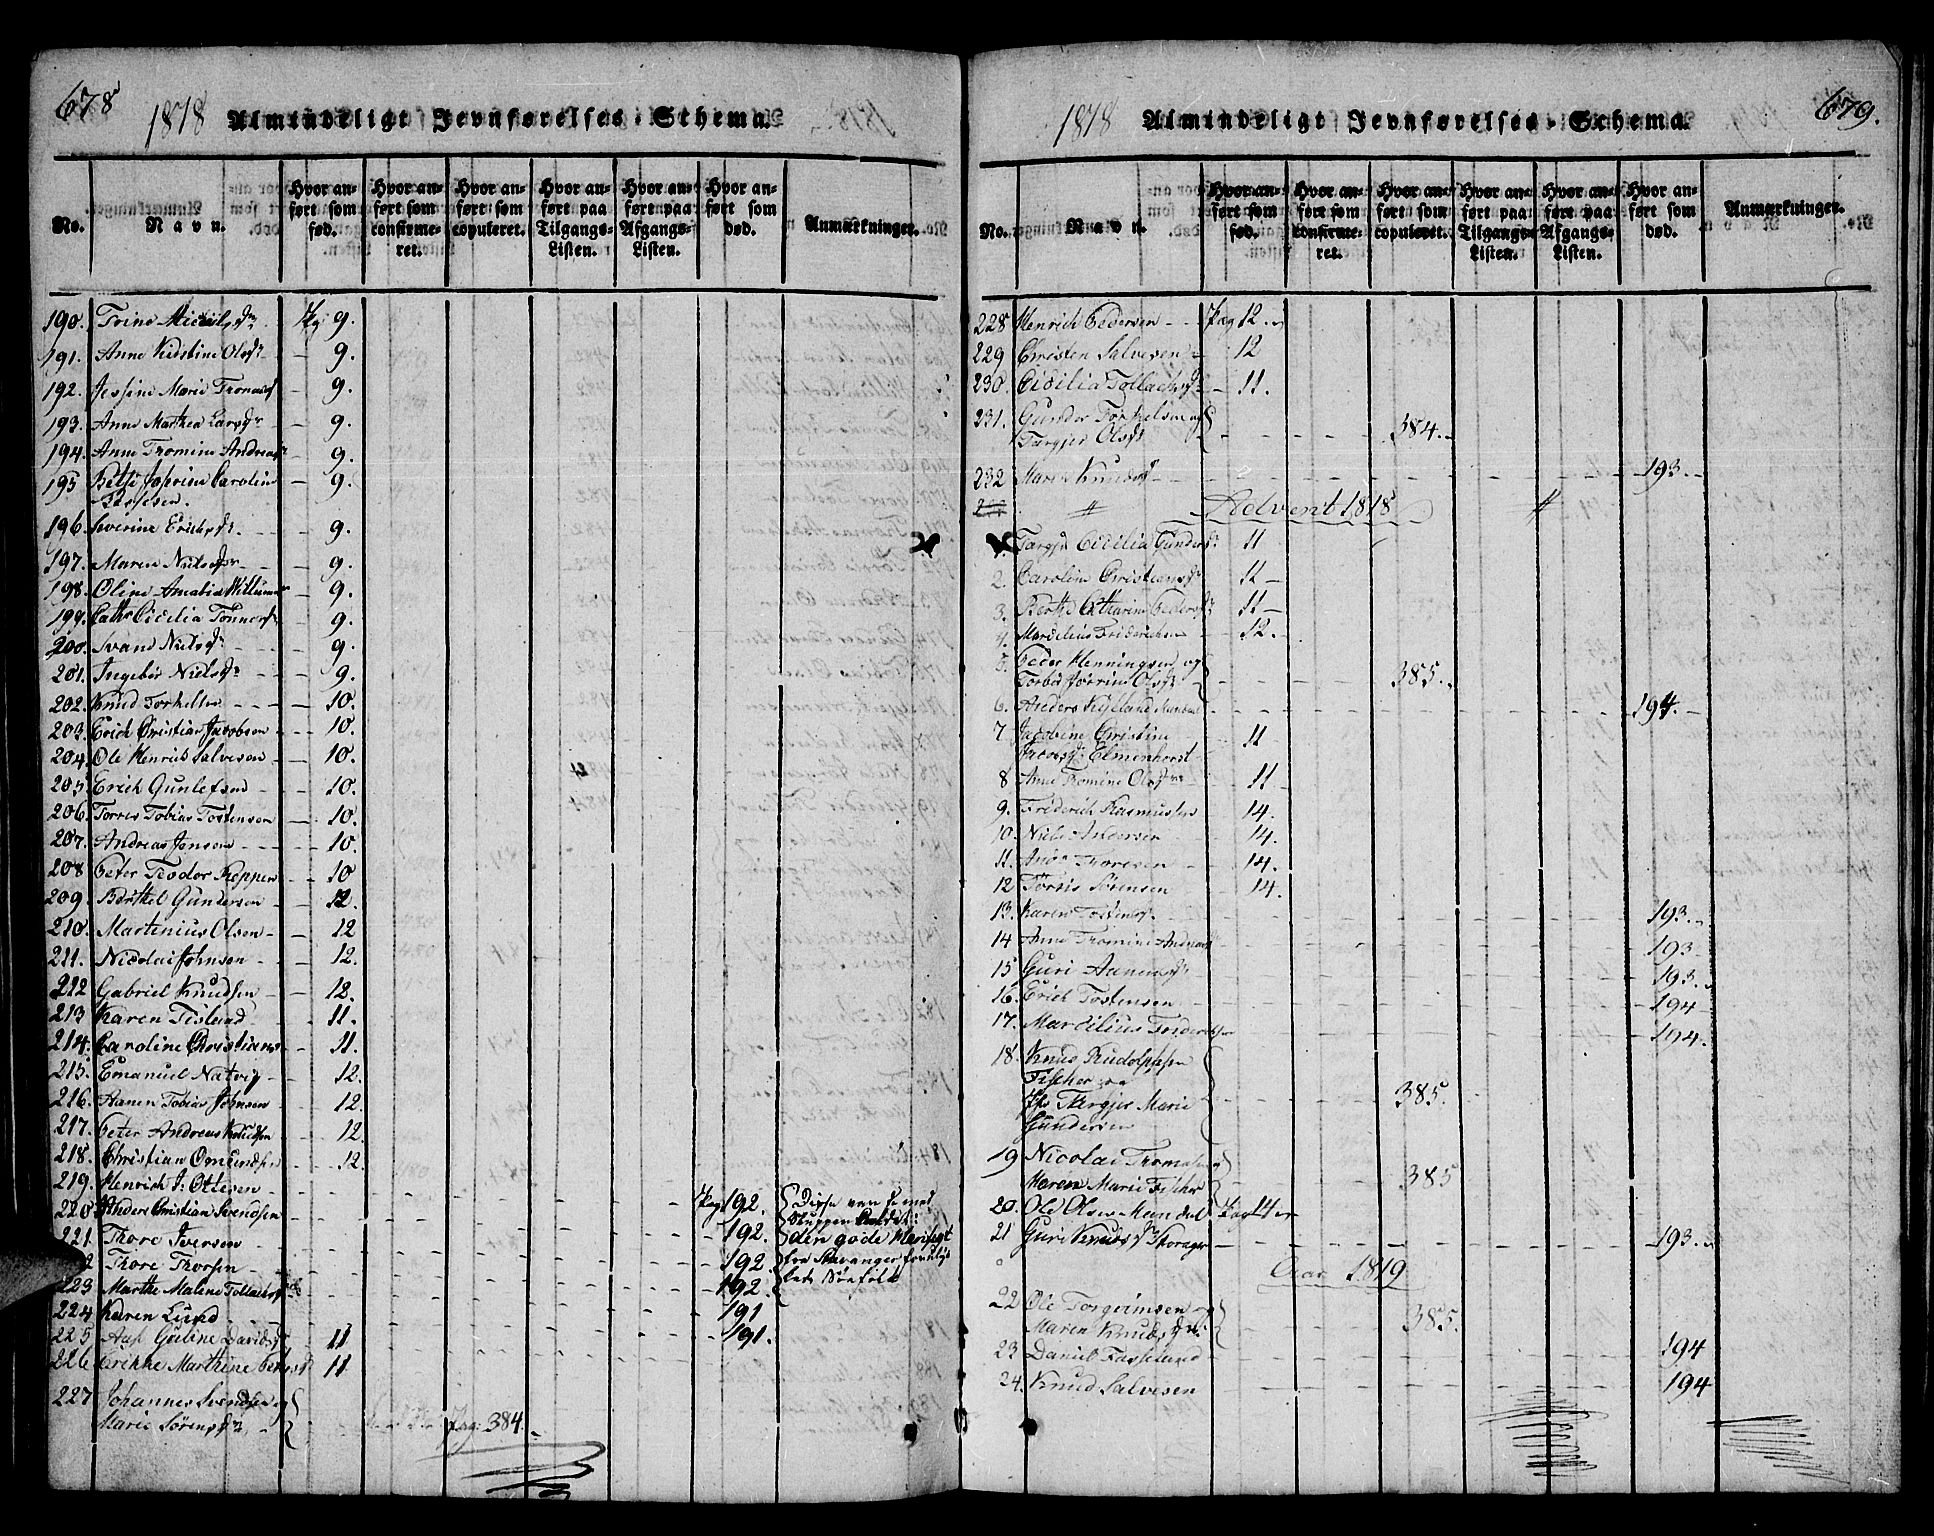 678
1818 Almindeligt Jevnførelses-Schema.
No.
Navn.
Hvor anført som fød.
Hvor anført som confirmeret.
Hvor anført som copuleret.
Hvor anført paa Tilgangs-Listen.
Hvor anført paa Afgangs-Listen.
Hvor anført som død.
Anmærkninger.
190. Trine Michelsdr. Pag 9.
191. Anne Kirstine Olsdr. - 9.
192. Jessine Marie Tromasd - 9.
193. Anne Marthea Larsdr - 9.
194. Anne Tromine Andreasdr - 9.
195 Carolin - 9.
196. Severine Ericksdr. - 9.
197. Maren Nielsdr - 9.
198. Oline Amalia Willums - 9.
199. Cath: Cicilia Tønnesdr - 9.
200. Svane Nielsdr - 9.
201. Ingebor Nielsdr - 9.
202. Knud Torkelsen - 10.
203. Erich Christian Jacobsen - 10.
204. Ole Henrich Salvesen - 10.
205 Erich Gunlefsen - 10.
206. Torris Tobias Tostensen - 10.
207. Andreas Jensen - 10.
208 Peter Teodor Reppen - 10
209. Berthel Gundersen - 12.
210. Martinius Olsen - 12
211. Nicolai Johnsen - 12.
212 Gabriel Knudsen - 12.
213 Karen Fislund - 11.
214. Caroline Christians - 11.
215. Emanuel Natvig - 12.
216. Aanen Tobias Johnsen - 12.
217. Peter Andreas Knudsen - 12.
218. Christian Omundsen - 12.
219. Henrich J: Ottesen - Pag 192.
220 Anders Christian Svendsen - 192.
221 Thore Iversen - 192
Thore Thorsen - 192.
223 Marthe Malene Tollachsd
224 Karen Lund - 191
225 Gubine Davidsdr 11 191.
226 Marthine Peders 11
227 Johannes Svendsen og
Marie Sørensdr - Pag: 384.
Disse
den gode
fra Stavanger
679.
1818 Almindeligt Jevnførelses-Schema.
No.
Navn.
Hvor anført som fød.
Hvor anført som confirmeret.
Hvor anført som copuleret.
Hvor anført paa Tilgangs-Listen.
Hvor anført paa Afgangs-Listen.
Hvor anført som død.
Anmærkninger.
228 Henrich Pedersen - Pag 12.
229 Christen Salvesen - 12
230. Cicilia Tollachsdr - 11.
231. Gunder Torkelsen og
Targjer Olsdr - 384.
232 Maren Knudsdr - 193.
Advent 1818
1. Targjer Cicilia Gundersdr 11
2. Caroline Christiansdr 11 -
3. Berthe Catharine Pedersdr 11 -
4. Marcilius Friderichsen - 12.
5. Peder Henningsen og
Torbor Jorrine Olsdr - 385.
6. Anders Kylland - 194.
7 Jacobine Christine
Jacobsd: Elmenhorst - 11
8 Anne Tromine Olsdr - 11
9. Friderich Rasmussen 14.
10. Niels Andersen - 14.
11. Thoresen - 14.
12 Torris Sørensen - 14.
13. Karen Tostensdr - 193.
14 Anne Tromine Andreasd - 193
15 Guri Aanensdr - 193.
16. Erich Tostensen - 194
17. Marcilius Friderichsen - 194.
18. Knud Rudolphsen
Fischer og
Targjer Marie
Gundersen - 385.
19 Nicolai Tromsen og
Maren Marie Fischer - 385
20. Ole Olsen Mandal Pag 14
21 Guri Knudsdr - 193.
Aar 1819
22 Ole Torgrimsen og
Maren Knudsdr: - 385.
23 Daniel - 194
24. Knud Salvesen - 194